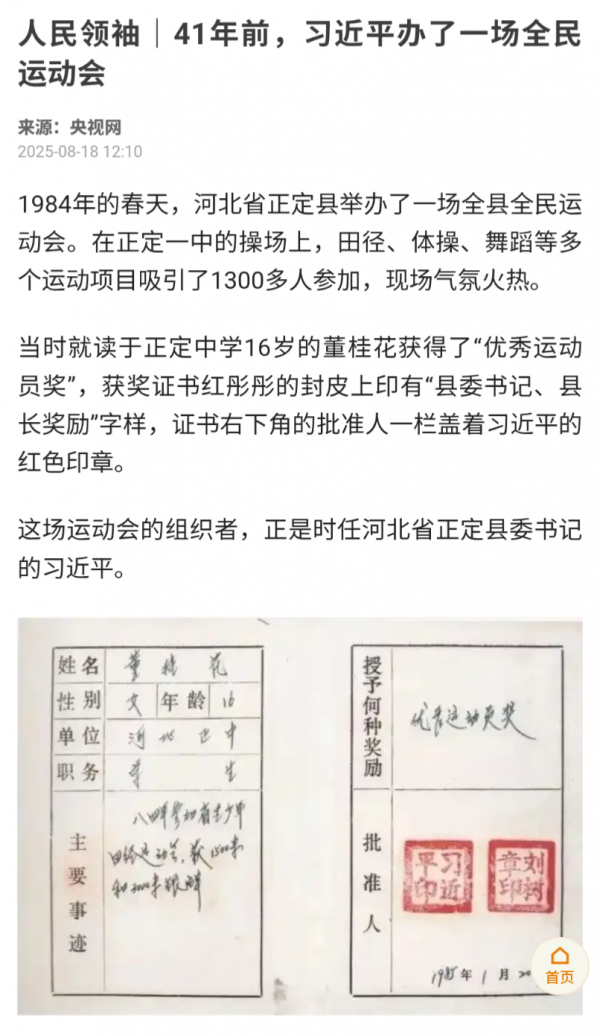 人民领袖｜41年前，习近平办了一场全民
运动会
来源：央视网
2025-08-18 12:10
1984年的春天，河北省正定县举办了一场全县全民运
动会。在正定一中的操场上，田径、体操、舞蹈等多
个运动项目吸引了1300多人参加，现场气氛火热。
当时就读于正定中学16岁的董桂花获得了“优秀运动
员奖”，获奖证书红彤彤的封皮上印有“县委书记、县
长奖励”字样，证书右下角的批准人一栏盖着习近平的
红色印章。
这场运动会的组织者，正是时任河北省正定县委书记
的习近平。
姓名 董桂花
性别 女 年龄 16
单位 河北正中
职务 学生
主要事迹
八四年参加省青少年
田径运动会，获1500米
和3000米银牌
授予何种奖励
优秀运动员奖
批准人
习近平印
刘树章印
1985年1月20
首页